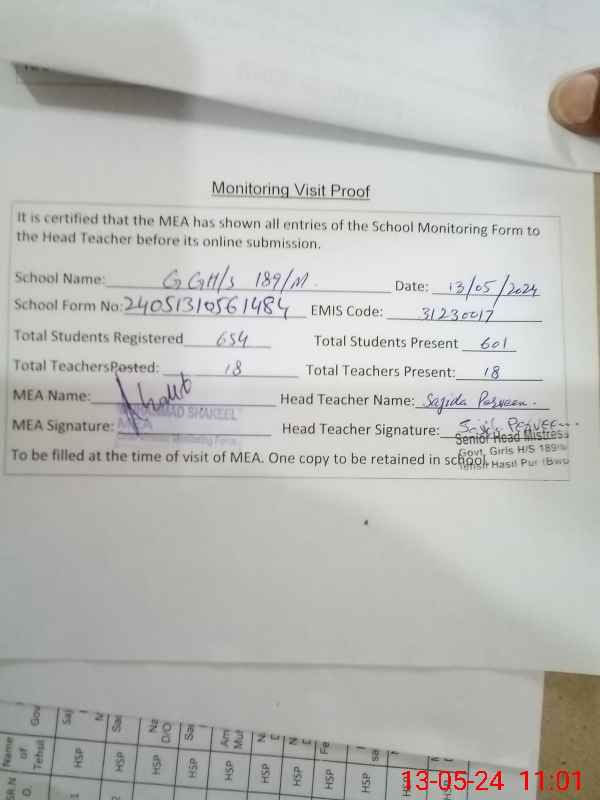 Monitoring Visit Proof
It is certified that the MEA has shown all entries of the School Monitoring Form to
the Head Teacher before its online submission.
School Name: G GH/S 189/M. Date: 13/05/2024
School Form No: 24051310561484 EMIS Code: 31230017
Total Students Registered 654 Total Students Present 601
Total TeachersPosted: 18 Total Teachers Present: 18
MEA Name: Head Teacher Name: Sajida Parveen.
MUHAMMAD SHAKEEL
MEA Signature: MEA Head Teacher Signature:
Senior Head Mistress
Govt, Girls H/S 189/M
Tehsil Hasil Pur (Bwp
To be filled at the time of visit of MEA. One copy to be retained in school.
Name of Tehsil
HSP HSP HSP HSP HSP HSP HSP HSP HSP
13-05-24 11:01